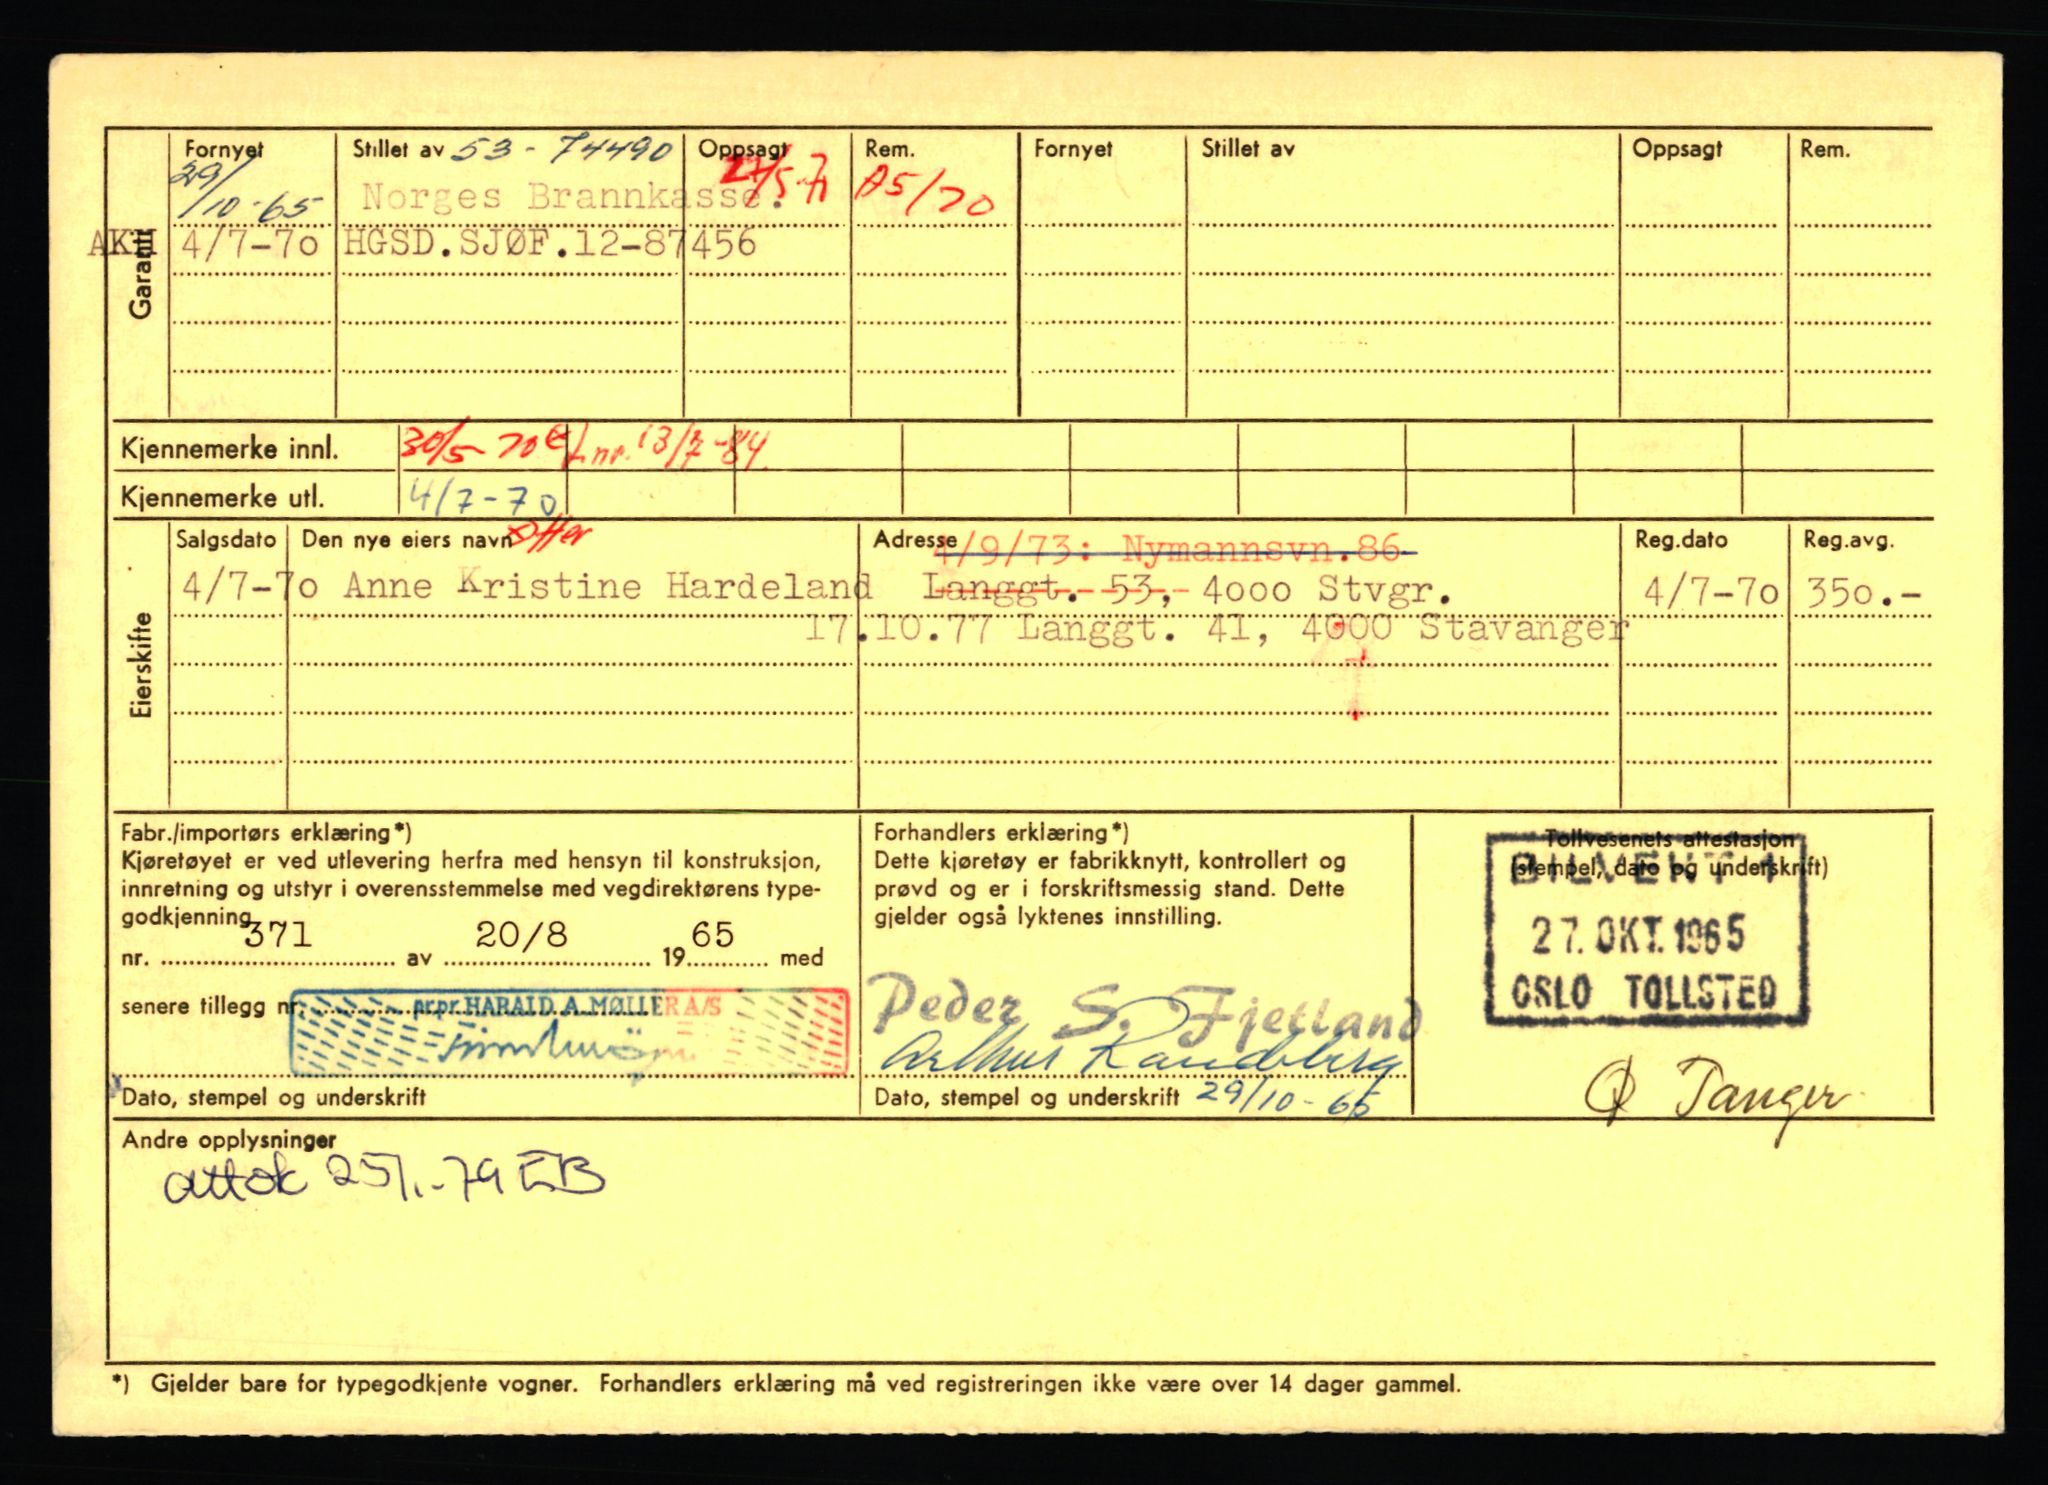 Garanti
Fornyet Stillet av 53-74490 Oppsagt Rem. Fornyet Stillet av Oppsagt Rem.
29/10-65 Norges Brannkasse. A5/70
AKH 4/7-7o HGSD.SJØF.12-87456
Kjennemerke innl. 30/5-70 Lnr. 13/7-84.
Kjennemerke utl. 4/7-70
Eierskifte
Salgsdato Den nye eiers navn Adresse 4/9/73: Nymannsvn.86 Reg.dato Reg.avg.
4/7-7o Anne Kristine Hardeland Langgt. 53, 4ooo Stvgr. 4/7-7o 35o.-
17.10.77 Langgt. 41, 4000 Stavanger
Fabr./importørs erklæring*)
Kjøretøyet er ved utlevering herfra med hensyn til konstruksjon,
innretning og utstyr i overensstemmelse med vegdirektørens type-
godkjenning
nr. 371 av 20/8 1965 med
senere tillegg nr.
prpr. HARALD A. MØLLER A/S
Dato, stempel og underskrift
Forhandlers erklæring*)
Dette kjøretøy er fabrikknytt, kontrollert og
prøvd og er i forskriftsmessig stand. Dette
gjelder også lyktenes innstilling.
Peder S. Fjetland
Arthur Randeberg
Dato, stempel og underskrift 29/10-65
Tollvesenets attestasjon
(stempel, dato og underskrift)
27. OKT. 1965
OSLO TOLLSTED
Ø Tanger
Andre opplysninger
att ok 25/1-79 EB
*) Gjelder bare for typegodkjente vogner. Forhandlers erklæring må ved registreringen ikke være over 14 dager gammel.